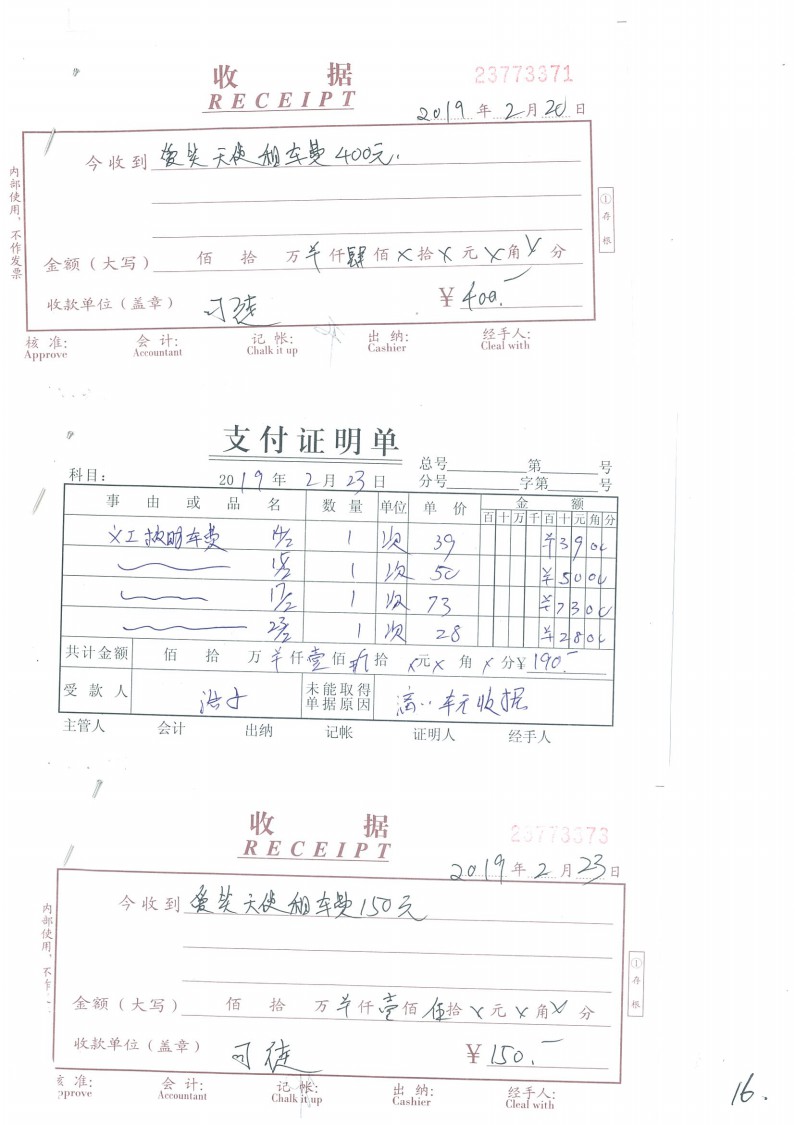 收 据 23773371
RECEIPT
2019 年 2 月 20 日
今收到 爱笑天使租车费400元.
金额（大写） 佰 拾 万 羊 仟 肆 佰 x 拾 x 元 x 角 x 分
收款单位（盖章） ¥ 400.-
核 准: 会 计: 记 帐: 出 纳: 经手人:
Approve Accountant Chalk it up Cashier Cleal with
内部使用，不作发票
①存根
支付证明单
总号 第 号
科目： 2019 年 2 月 23 日 分号 字第 号
事 由 或 品 名 数 量 单位 单 价 金 额
百 十 万 千 百 十 元 角 分
义工 车费 14/2 1 次 39 ¥3900
15/2 1 次 50 ¥5000
17/2 1 次 73 ¥7300
23/2 1 次 28 ¥2800
共计金额 佰 拾 万 羊 仟 壹 佰 玖 拾 x 元 x 角 x 分 ¥ 190.-
受 款 人 未能取得单据原因 车无收据
主管人 会计 出纳 记帐 证明人 经手人
收 据 23773373
RECEIPT
2019 年 2 月 23 日
今收到 爱笑天使租车费150元
金额（大写） 佰 拾 万 羊 仟 壹 佰 伍 拾 x 元 x 角 x 分
收款单位（盖章） ¥ 150.-
准: 会 计: 记 帐: 出 纳: 经手人:
pprove Accountant Chalk it up Cashier Cleal with
内部使用，不作
①存根
16.